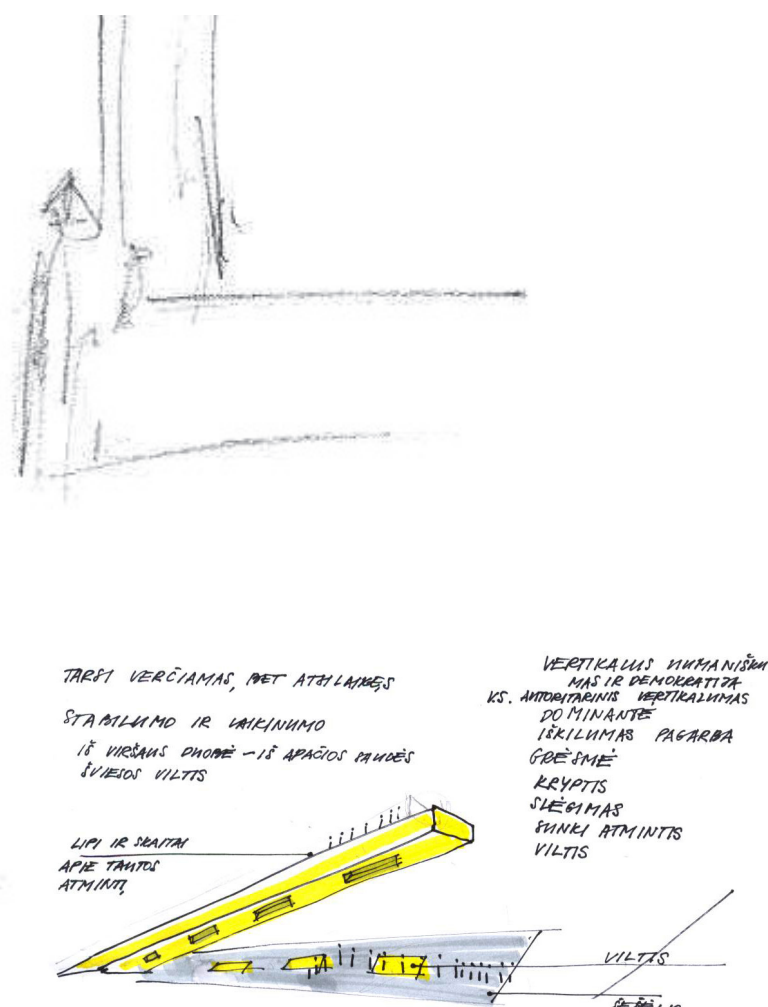 TARSI VERČIAMAS, BET ATSILAIKĘS
STABILUMO IR LAIKINUMO
IŠ VIRŠAUS DUOBĖ – IŠ APAČIOS
ŠVIESOS VILTIS
LIPI IR SKAITAI
APIE TAUTOS
ATMINTĮ
VERTIKALUS HUMANIŠKU
MAS IR DEMOKRATIJA
VS. AUTORITARINIS VERTIKALUMAS
DOMINANTĖ
IŠKILUMAS PAGARBA
GRĖSMĖ
KRYPTIS
SLĖGIMAS
SUNKI ATMINTIS
VILTIS
VILTIS